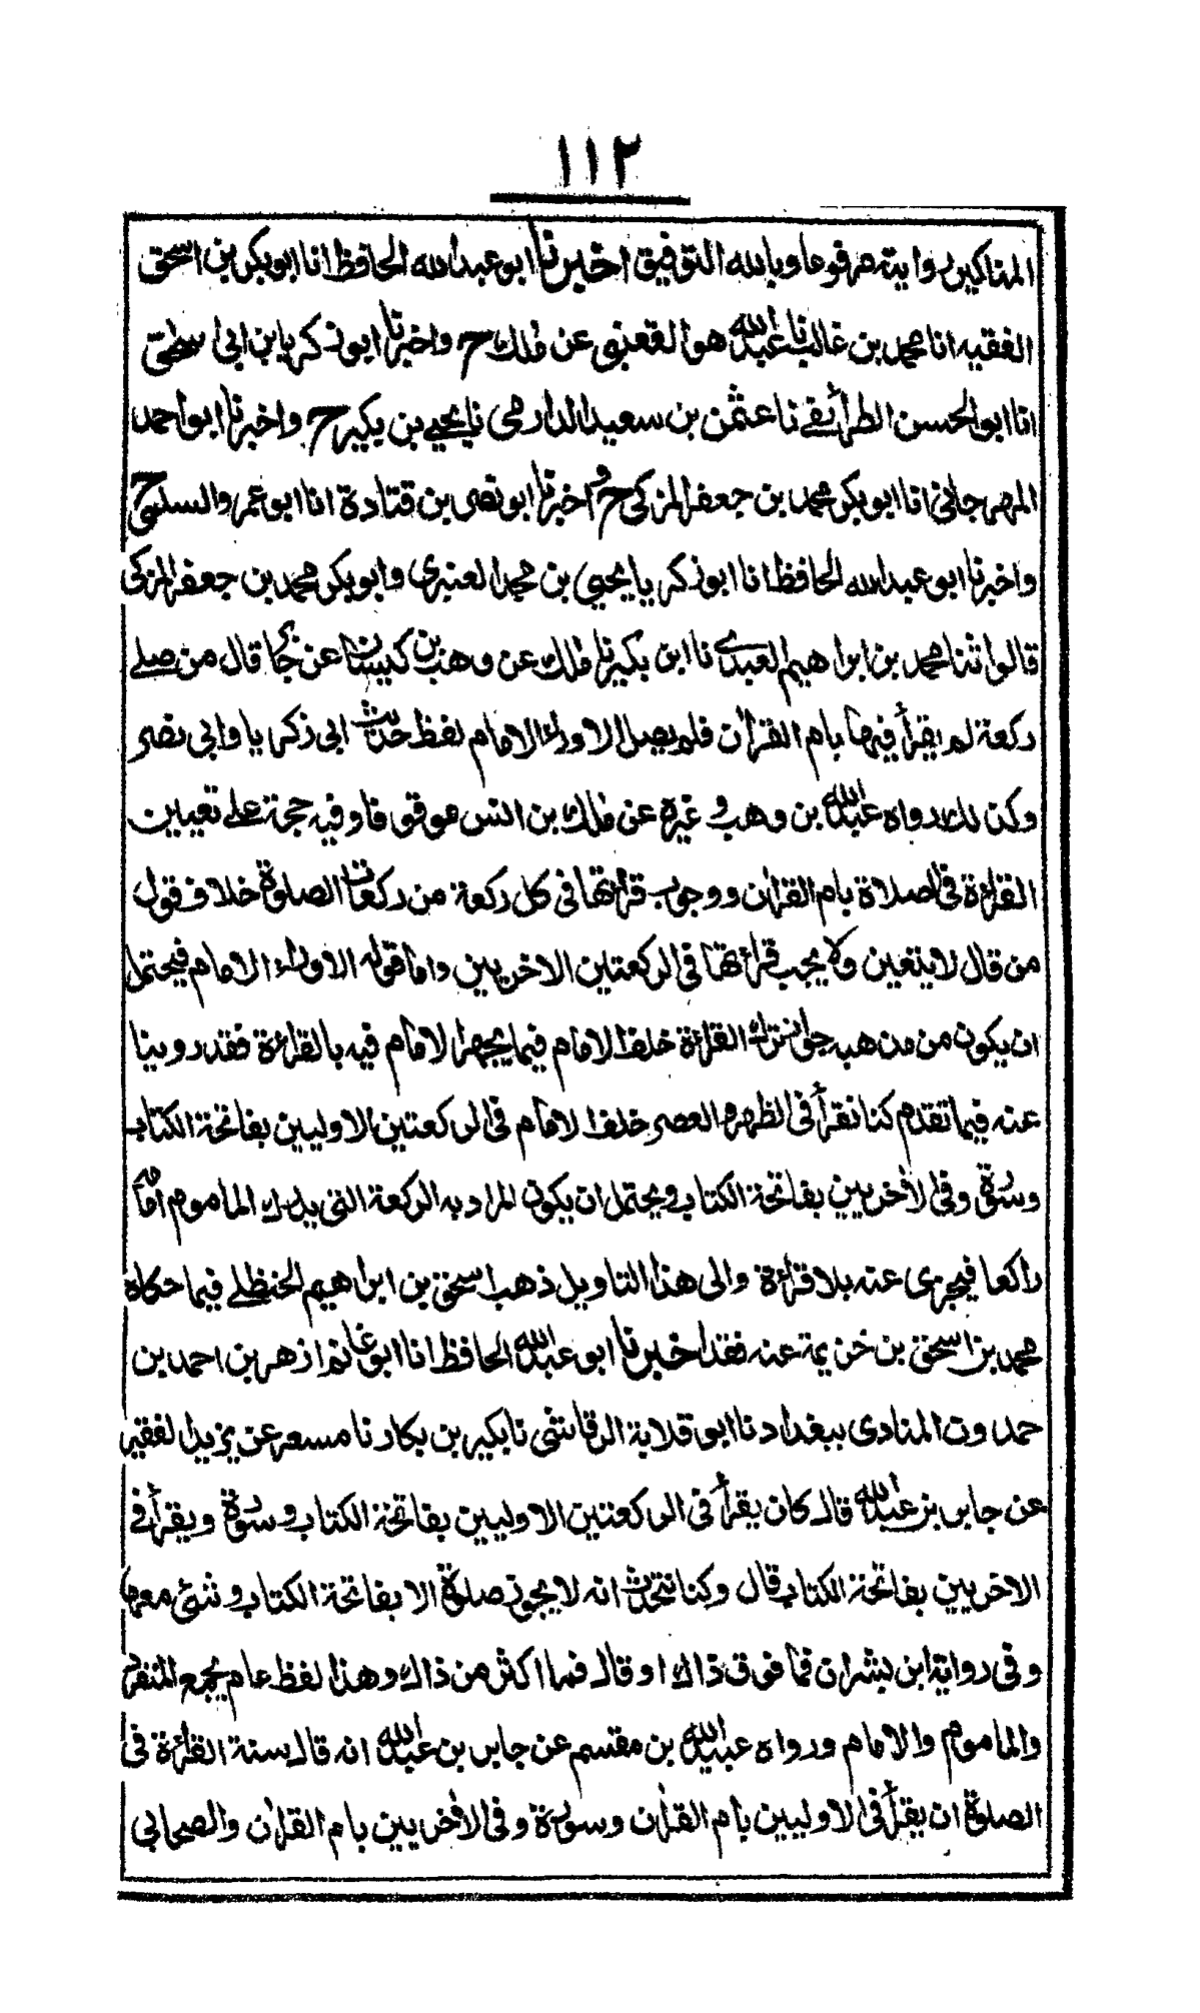 ١١٢
المناكير روايته مرفوعا وبالله التوفيق اخبرنا ابو عبدالله الحافظ انا ابوبكر بن اسحق
الفقيه انا محمد بن غالب نا عبدالله هو القعنبي عن مٰلك ح واخبرنا ابو زكريا بن ابي اسحٰق
انا ابو الحسن الطرائفے نا عثمٰن بن سعيد الدارمى نا يحيے بن بكير ح واخبرنا ابو احمد
المهرجانى انا ابوبكر محمد بن جعفر المزكى ح واخبرنا ابو نصر بن قتادة انا ابو عمر والسلمى ح
واخبرنا ابو عبدالله الحافظ انا ابو زكريا يحيى بن محمد العنبرى وابوبكر محمد بن جعفر المزكى
قالوا ثنا محمد بن ابراهيم العبدى نا ابن بكير نا مٰلك عن وهب بن كيسان عن جابر قال من صلے
ركعة لم يقرأ فيها بام القراٰن فلم يصل الا وراء الامام لفظ حديث ابى زكريا وابي نصر
وكذلك رواه عبدالله بن وهب وغيره عن مٰلك بن انس موقوفا وفيه حجة علے تعيين
القراءة فى الصلاة بام القراٰن ووجوب قراءتها فى كل ركعة من ركعات الصلوة خلاف قول
من قال لا يتعين ولا يجب قراءتها فى الركعتين الاخريين واما قوله الا وراء الامام فيحتمل
ان يكون من مذهبه جواز ترك القراءة خلف الامام فيما يجهر الامام فيه بالقراءة فقد روينا
عنه فيما تقدم كنا نقرأ فى الظهر والعصر خلف الامام فى الركعتين الاوليين بفاتحة الكتاب
وسورة وفى الاخريين بفاتحة الكتاب ويحتمل ان يكون المراد به الركعة التى يدرك الماموم امامه
راكعا فيجزى عنه بلا قراءة والى هذا التاويل ذهب اسحٰق بن ابراهيم الحنظلے فيما حكاه
محمد بن اسحٰق بن خزيمة عنه فقد اخبرنا ابو عبدالله الحافظ انا ابو غانم ازهر بن احمد بن
حمدون المنادى ببغداد نا ابو قلابة الرقاشى نا بكير بن بكار نا مسعر عن يزيد الفقير
عن جابر بن عبدالله قال كان يقرأ فى الركعتين الاوليين بفاتحة الكتاب وسورة ويقرأ فى
الاخريين بفاتحة الكتاب قال وكنا نتحدث انه لا يجوز صلوة الا بفاتحة الكتاب وشئ معها
وفى رواية ابن بشران فما فوق ذاك او قال فما اكثر من ذاك وهذا لفظ عام يجمع المنفرد
والماموم والامام ورواه عبيدالله بن مقسم عن جابر بن عبدالله انه قال سنة القراءة فى
الصلوة ان يقرأ فى الاوليين بام القراٰن وسورة وفى الاخريين بام القراٰن والصحابي